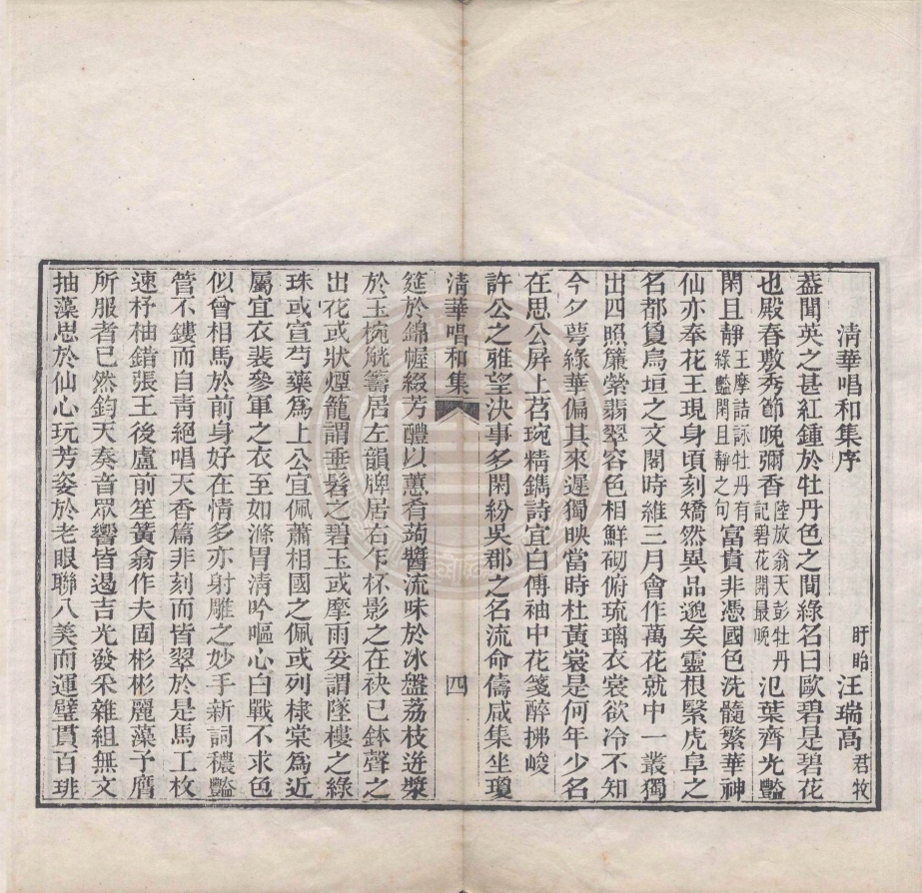 清華唱和集序
盱眙 汪瑞高 君牧
葢聞英之甚紅鍾於牡丹色之間綠名曰歐碧是碧花
也殿春敷秀節晚彌香陸放翁天彭牡丹記碧花開最晚氾葉齊光豔
閑且靜王摩詰詠牡丹有綠豔閑且靜之句富貴非憑國色洗髓繁華神
仙亦奉花王現身頃刻矯然異品邈矣靈根緊虎阜之
名都敻烏垣之文閣時維三月會作萬花就中一叢獨
出四照簾縈翡翠容色相鮮砌俯琉璃衣裳欲冷不知
今夕萼綠華偏其來遲獨映當時杜黃裳是何年少名
在思公屏上苕琬精鐫詩宜白傅袖中花箋醉拂峻
許公之雅望決事多閑紛吳郡之名流命儔咸集坐瓊
清華唱和集
四
筵於錦幄綴芳醴以蕙肴蒟醬流味於冰盤荔枝迸漿
於玉椀觥籌居左韻牌居右乍杯影之在袂已鉢聲之
出花或狀煙籠謂垂髫之碧玉或摩雨妥謂墜樓之綠
珠或宣芍藥爲上公宜佩蕭相國之佩或列棣棠爲近
屬宜衣裴參軍之衣至如滌胃清吟嘔心白戰不求色
似曾相馬於前身好在情多亦射雕之妙手新詞穠豔
管不鏤而自靑絕唱天香篇非刻而皆翠於是馬工枚
速杼柚錯張王後盧前笙簧翕作夫固彬彬麗藻予膺
所服者已然鈞天奏音眾響皆遏吉光發采雜組無文
抽藻思於仙心玩芳姿於老眼聯八美而運璧貫百琲